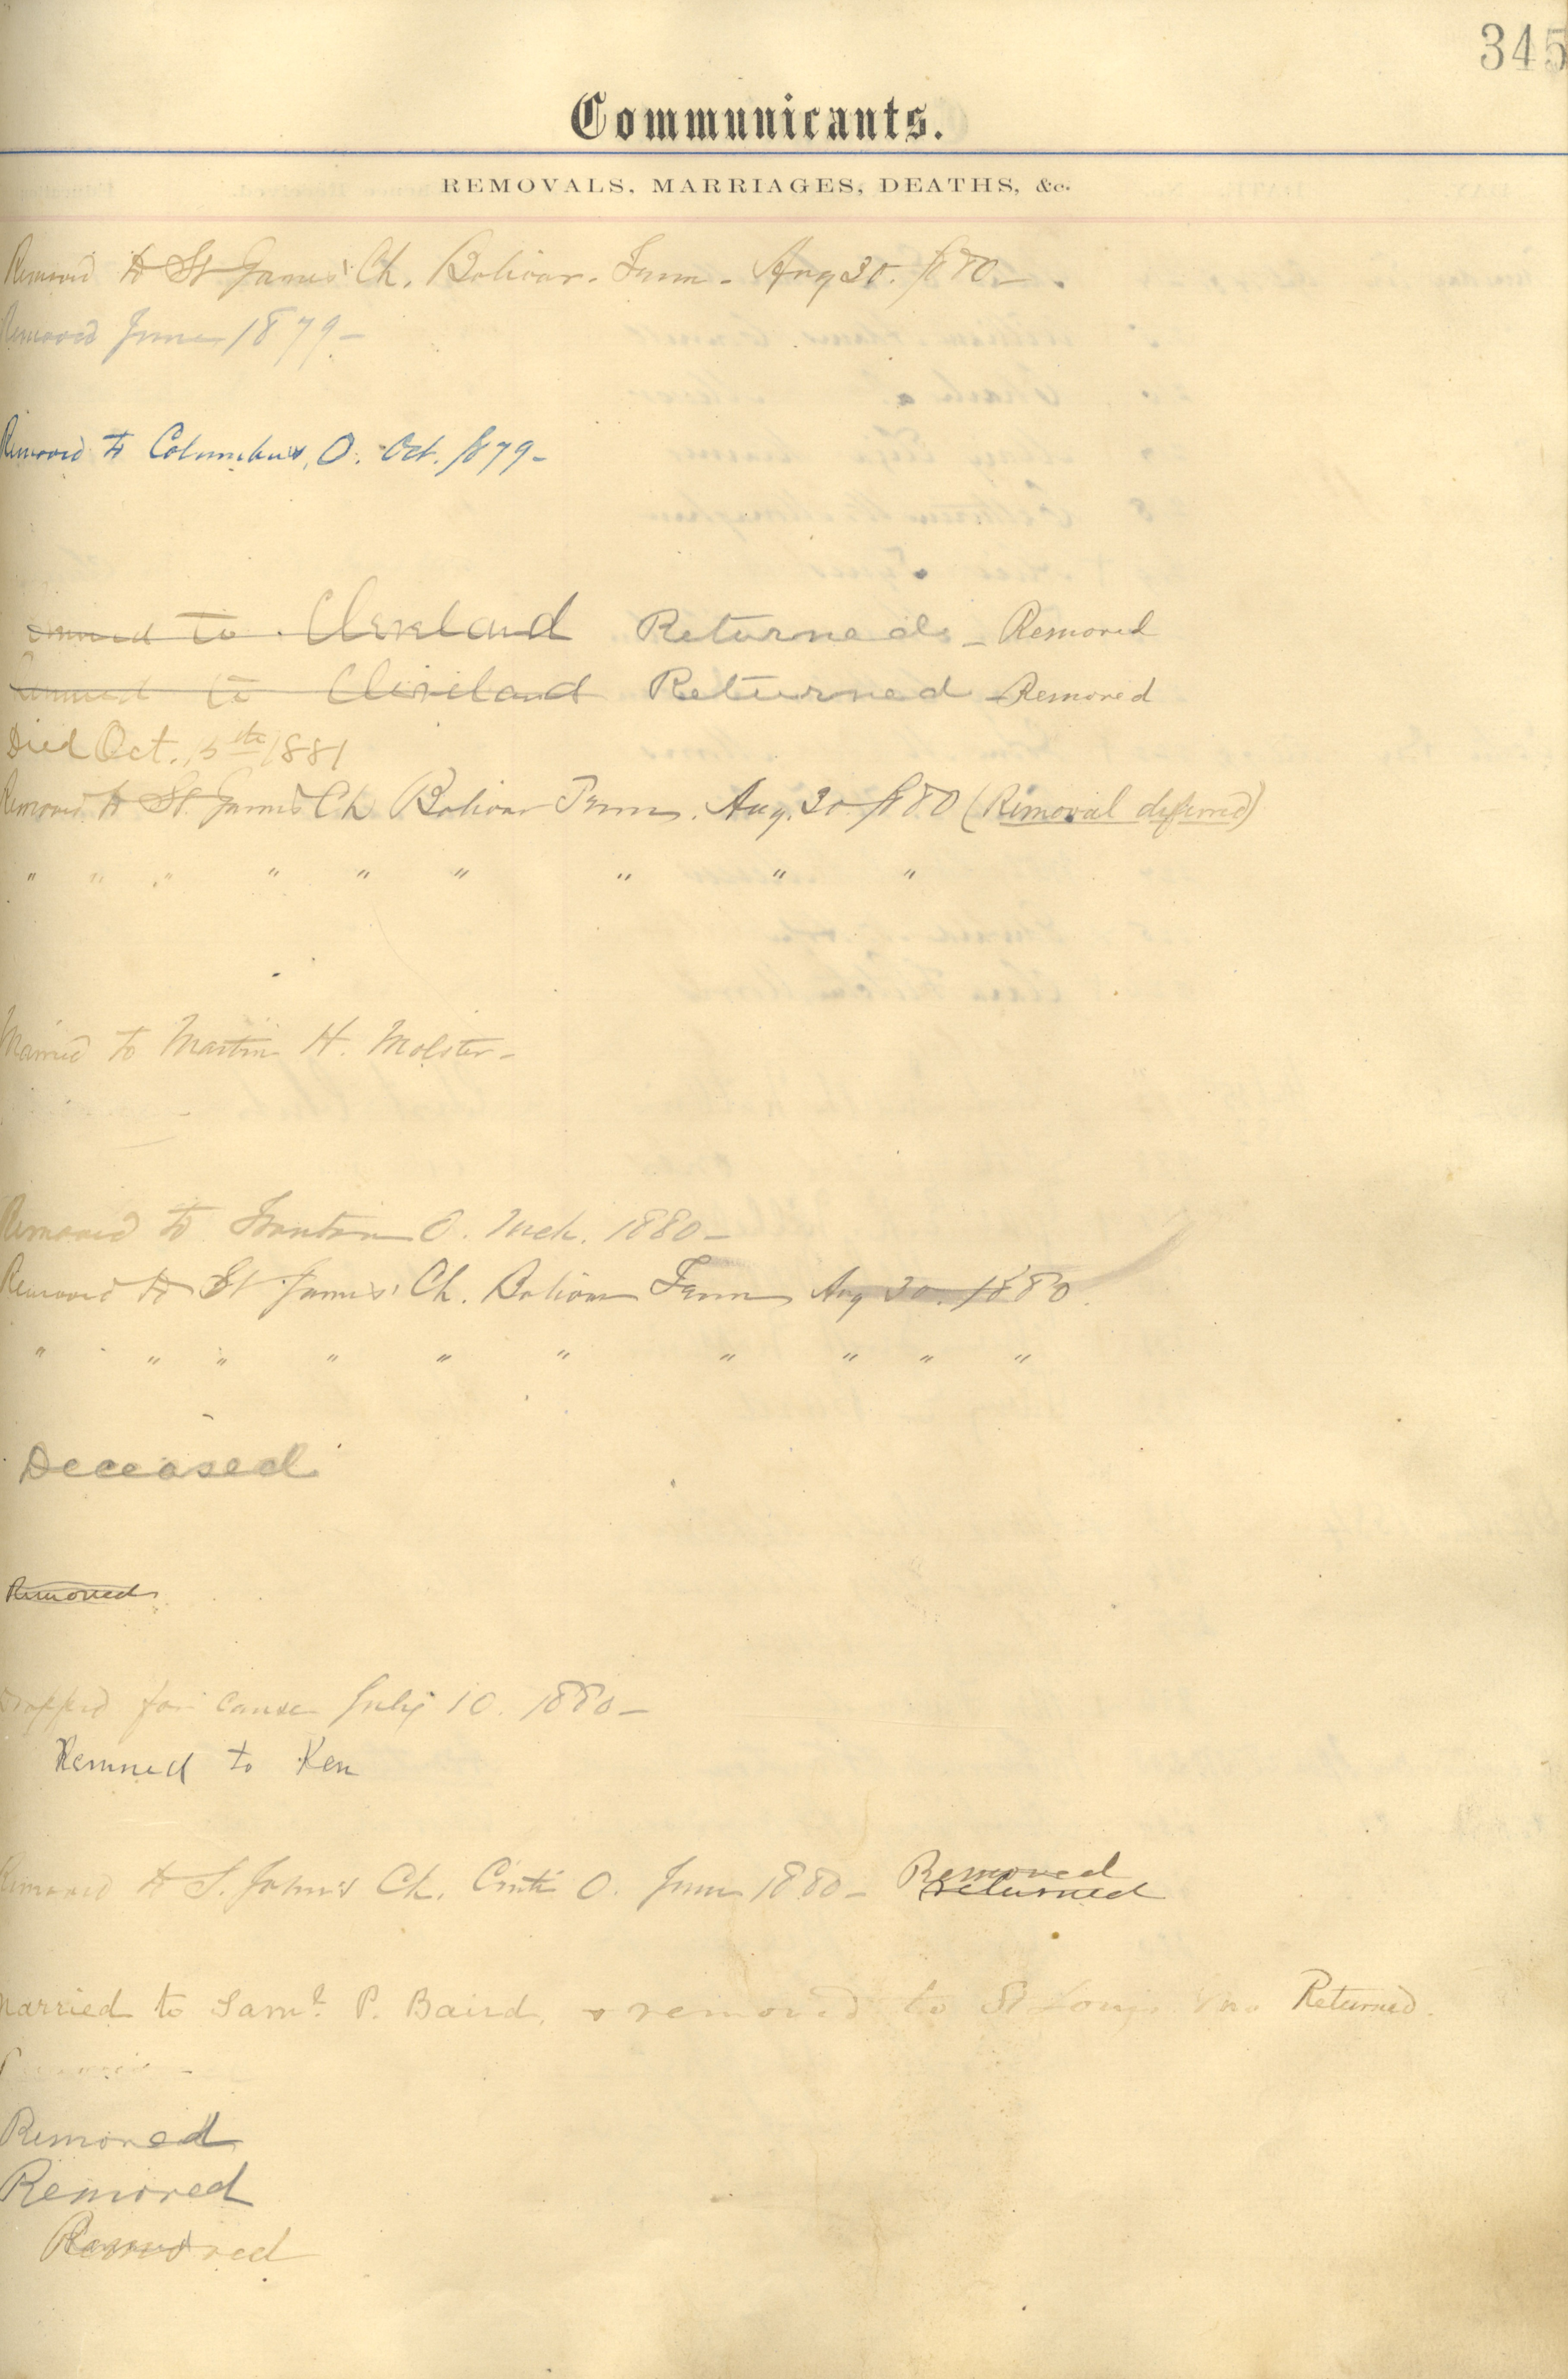 345
Communicants.
REMOVALS, MARRIAGES, DEATHS, &c.
Removed to St James' Ch. Bolivar. Tenn - Aug 30. 1880 -
Removed June 1879 -
Removed to Columbus, O. Oct. 1879 -
to Cleveland Returned - Removed
Removed to Cleveland Returned - Removed
Died Oct. 15th 1881
Removed to St. James Ch Bolivar Tenn. Aug. 30 1880 (Removal deferred)
" " " " " " " " "
Married to Martin H. Molster -
Removed to Ironton O. Mch. 1880 -
Removed to St James' Ch. Bolivar Tenn Aug 30. 1880.
" " " " " " " " " "
Deceased
Removed
Dropped for cause July 10. 1880 -
Removed to Ken
Removed to S. John's Ch. Cinti O. June 1880 - Removed
returned
Married to Saml. P. Baird, & removed to St Louis Mo Returned.
Removed
Removed
Removed